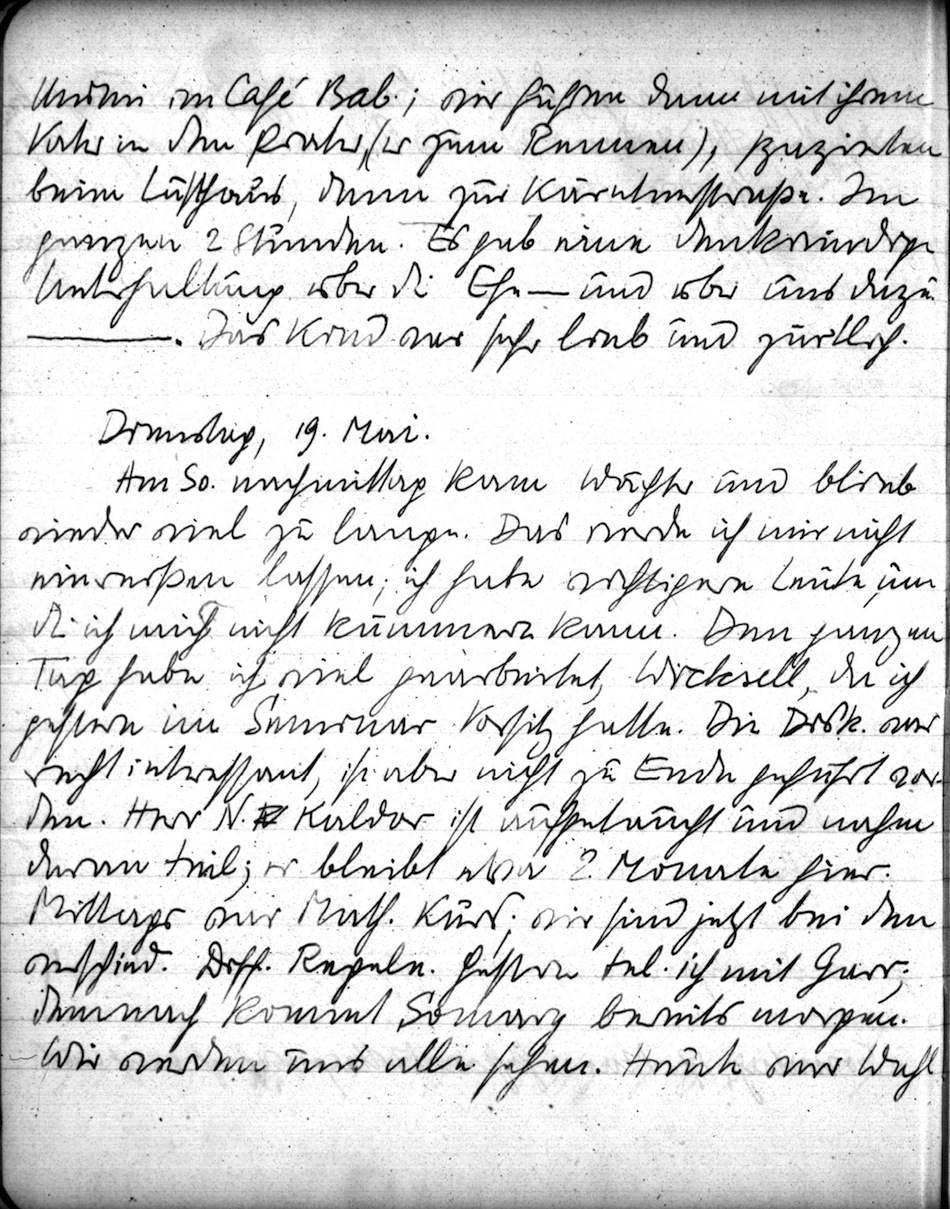 im Café Bab.; wir fuhren dann mit ihrem
Vater in den Prater, (er zum Rennen), spazierten
beim Lusthaus, dann zur Kärntnerstraße. Im
ganzen 2 Stunden. Es gab eine denkwürdige
Unterhaltung über die Ehe — und über uns dazu
———. Das Kind war sehr lieb und zärtlich.
Dienstag, 19. Mai.
Am So. nachmittag kam Wächter und blieb
wieder viel zu lange. Das werde ich mir nicht
einreißen lassen; ich habe wichtigere Leute, um
die ich mich nicht kümmern kann. Den ganzen
Tag habe ich viel gearbeitet, Wicksell, da ich
gestern im Seminar Vorsitz hatte. Die Disk. war
recht interessant, ist aber nicht zu Ende geführt wor-
den. Herr N. Kaldor ist aufgetaucht und nahm
daran teil; er bleibt etwa 2 Monate hier.
Mittags war Math. Kurs; wir sind jetzt bei den
verschied. Diff. Regeln. Gestern tel. ich mit Garr.;
demnach kommt Somary bereits morgen.
– Wir werden uns alle sehen. Heute war Wahl